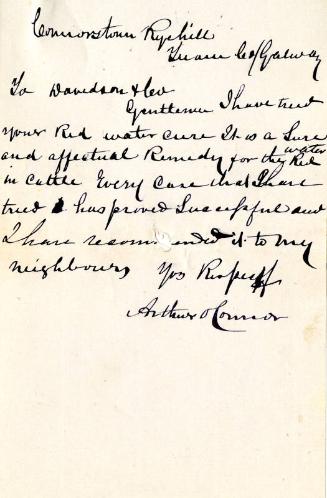 Connorstown Ryehill
Tuam Co/Galway
To Davidson & Co
Gentlemen I have tried
your Red water cure It is a Sure
and affectual Remedy for the Red water
in cattle Every Case that I have
tried has proved Successful and
I have recommended it to my
neighbours Yos Respectf
Arthur O Connor